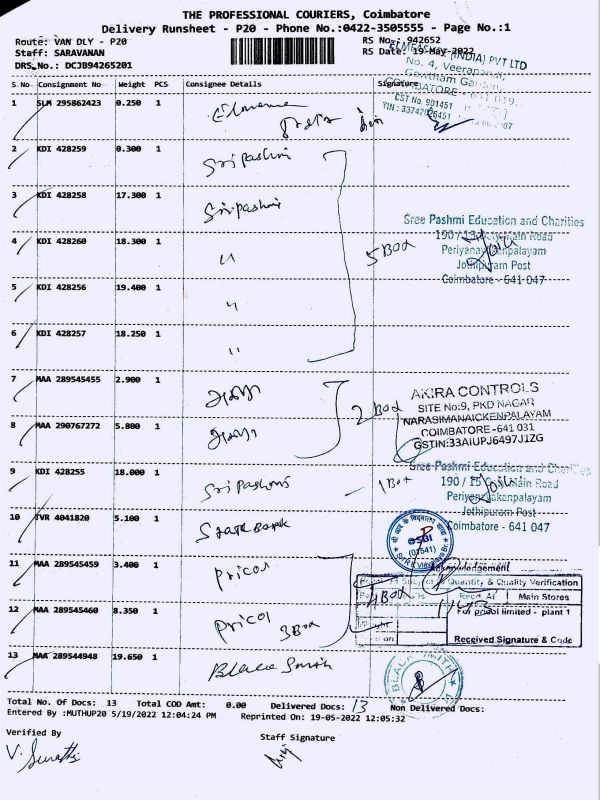 THE PROFESSIONAL COURIERS, Coimbatore
Delivery Runsheet - P20 - Phone No.:0422-3505555 - Page No.:1
Route: VAN DLY - P20
RS No.: 942652
Staff: SARAVANAN
RS Date: 19-May-2022
DRS No.: DCJB94265201
ELMEASURE (INDIA) PVT LTD
No. 4, Veerapandi,
Gowtham Garden,
COIMBATORE - 641 019.
CST No. 901451
TIN : 33742026451
S No Consignment No Weight PCS Consignee Details Signature
1 SLM 295862423 0.250 1
2 KDI 428259 0.300 1 Sripashmi
3 KDI 428258 17.300 1 Sripashmi
Sree Pashmi Education and Charities
Main Road
Periyanayakenpalayam
Jothipuram Post
Coimbatore - 641 047
4 KDI 428260 18.300 1 "
5 Box
5 KDI 428256 19.400 1 "
6 KDI 428257 18.250 1 "
7 MAA 289545455 2.900 1
2 Box
AKIRA CONTROLS
SITE No:9, PKD NAGAR
NARASIMANAICKENPALAYAM
COIMBATORE-641 031
GSTIN:33AIUPJ6497J1ZG
8 MAA 290767272 5.800 1
9 KDI 428255 18.000 1 Sripashmi - 1 Box
Sree Pashmi Education and Charities
Main Road
Periyanayakenpalayam
Jothipuram Post
Coimbatore - 641 047
10 TVR 4041820 5.100 1 State Bank
SBI
(01541)
11 MAA 289545459 3.400 1 Pricol
Acknowledgement
Subject to Quantity & Quality Verification
Recd. At Main Stores
For pricol limited - plant 1
Received Signature & Code
12 MAA 289545460 8.350 1 Pricol
3 Box
13 MAA 289544948 19.650 1 Black Smith
BLACK SMITH
Total No. Of Docs: 13 Total COD Amt: 0.00 Delivered Docs: 13 Non Delivered Docs:
Entered By :MUTHUP20 5/19/2022 12:04:24 PM Reprinted On: 19-05-2022 12:05:32
Verified By
Staff Signature